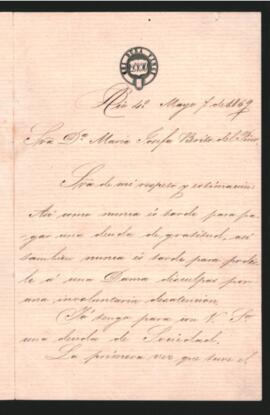 Rio 4º Mayo 7 de 1869
Sra Dª Maria Josefa Brito del Pino
Sra de mi respeto y estimacion
Asi como nunca és tarde para pa-
gar una deuda de gratitud, asi
tambien nunca és tarde para pedir-
le á una Dama disculpas por
una involuntaria desatencion
Yo tengo para con V. Sra
una deuda de Sociedad.
La primera vez que tuve el